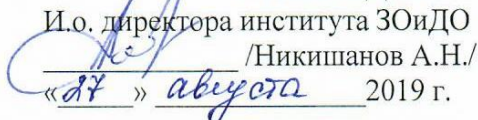 И.о. директора института ЗОиДО
/Никишанов А.Н./
«27» августа 2019 г.